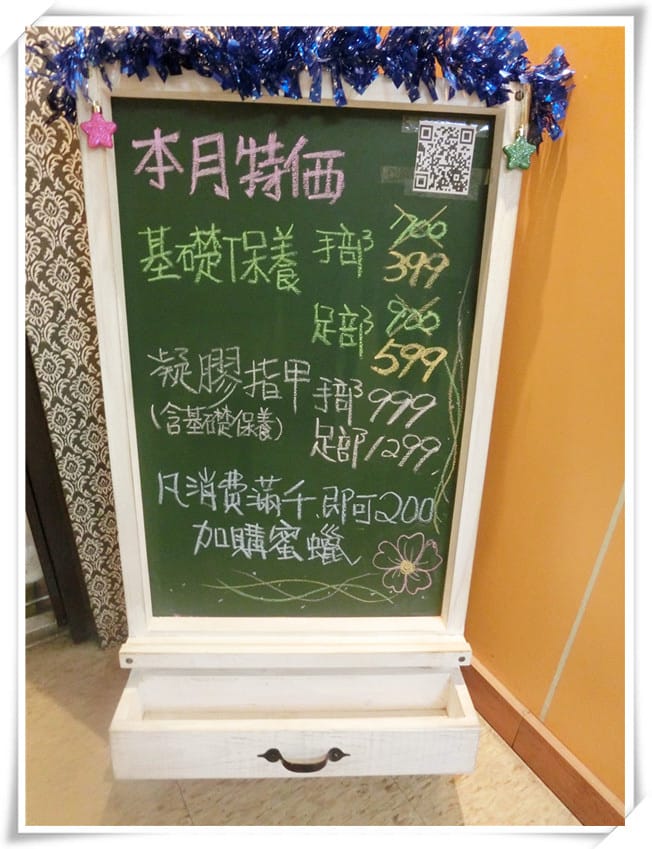 本月特価
基礎保養 手部 700
399
足部 900
599
凝膠指甲 手部 999
(含基礎保養) 足部 1299.
凡消費滿千,即可200
加購蜜蠟